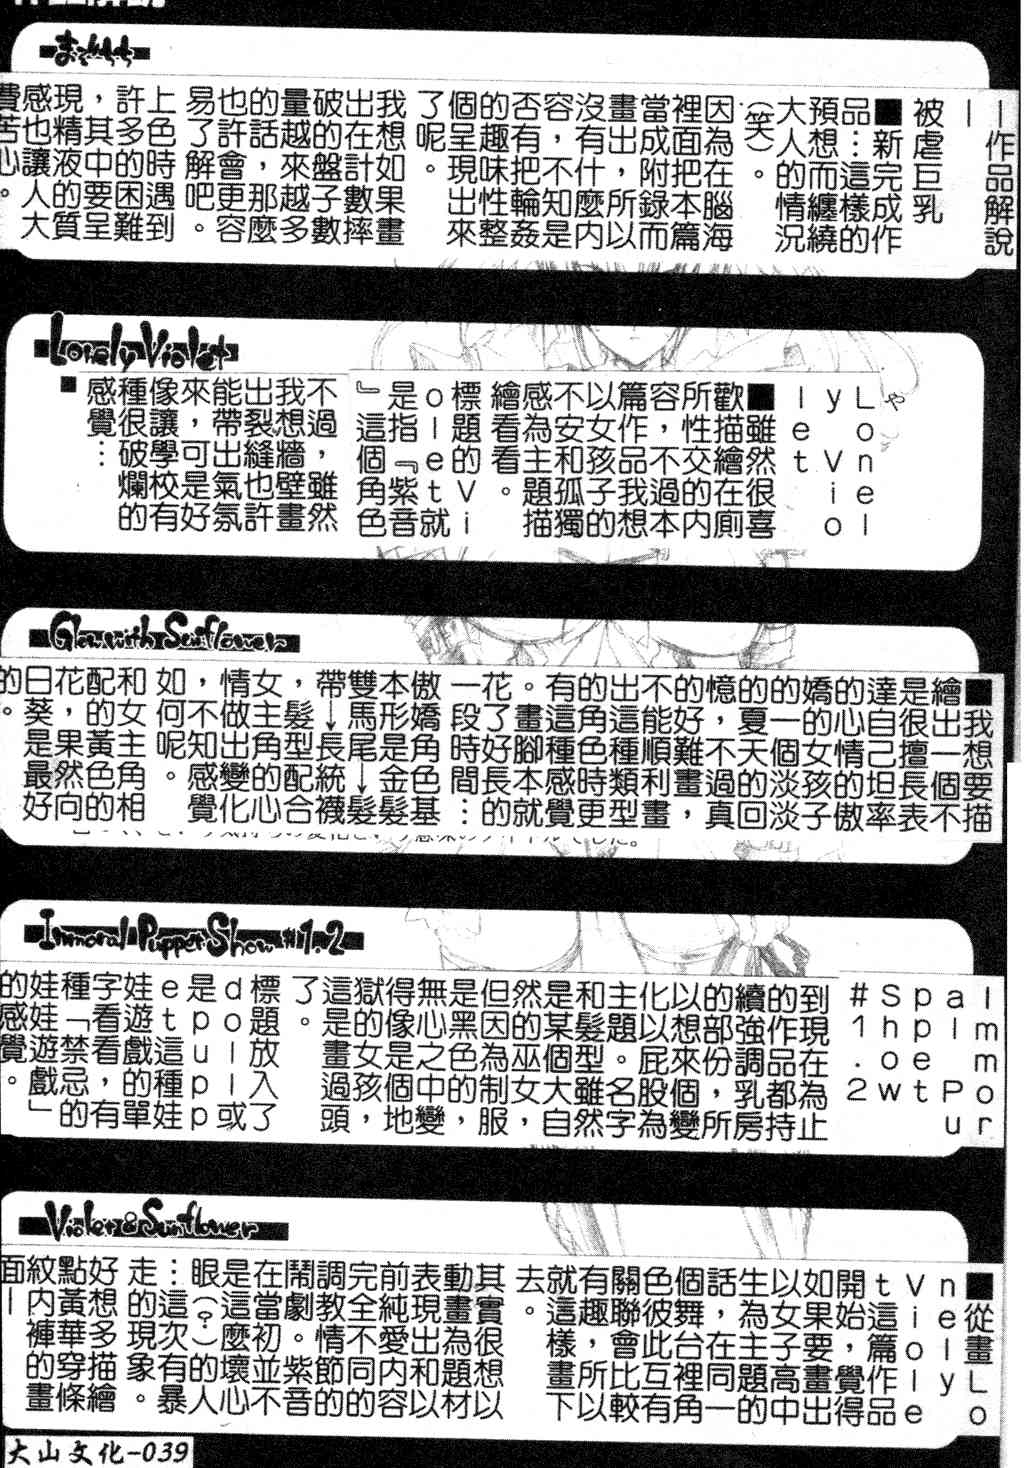 まぞちち
—作品解說
—
被虐巨乳
■新完成作
品…這樣的
預想而纏繞
大人的情況
（笑）。
因為在腦海
裡面把本篇
當成附錄而
畫出，所以
沒有什麼內
容，不知是
否有把輪姦
的趣味性整
個呈現出來
了呢。
我想如果畫
出在計數摔
破的盤子數
量越來越多
的話，那麼
也許會更容
易了解吧。
上色時遇到
許多的困難
，其中要呈
現精液的質
感也讓人大
費苦心。
Lonely Violet
Lonel
y Vio
let
■雖然很喜
歡描繪在廁
所性交的內
容，不過本
篇作品我想
以女孩子的
不安和孤獨
感為主題描
繪看看。
標題的Vi
olet就
是指『紫音
』這個角色
不過，雖然
我想牆壁畫
出裂縫也許
能帶出氣氛
來，可是好
像讓學校有
種很破爛的
感覺…
■
Glow with Sunflower
■我想要描
繪出一個不
是很擅長表
達自己坦率
的心情的傲
嬌的女孩子
的一個淡淡
的夏天的回
憶，不過真
的好難畫，
不能順利畫
出這種類型
的角色時更
有這種感覺
。畫腳本就
花了好長的
一段時間…
傲嬌角色基
本形是金髮
雙馬尾↓髮
帶↓長統襪
，髮型配合
女主角的心
情做出變化
，不知感覺
如何呢。
和女主角相
配的黃色的
花，果然向
日葵是最好
的。
Immoral Puppet Show #1.2
Immor
al Pu
ppet
Show
#1.2
到現在為止
的作品都持
續強調乳房
的部份，所
以想來個變
化以屁股為
主題。名字
和髮型雖然
是某個大自
然的巫女，
但因為制服
是黑色的，
無心之中變
得像是個地
獄的女孩，
這是畫過頭
了。
標題放入了
doll或
是pupp
et這種娃
娃遊戲的單
字看看，有
種「禁忌的
娃娃遊戲」
的感覺。
Violet&Sunflower
■從畫Lo
nely
Viole
t這篇作品
開始，覺得
如果要畫出
以女子高中
生為主題的
話，在同一
個舞台裡角
色彼此互有
關聯會比較
有趣，所以
就這樣畫下
去。
其實很想以
動畫為題材
表現出和以
前純愛內容
完全不同的
調教情節的
鬧劇。紫音
在當初並不
是這麼壞心
眼（？）的人
…這次有暴
走的現象。
好想多描繪
點黃華穿條
紋內褲的畫
面—
大山文化-039